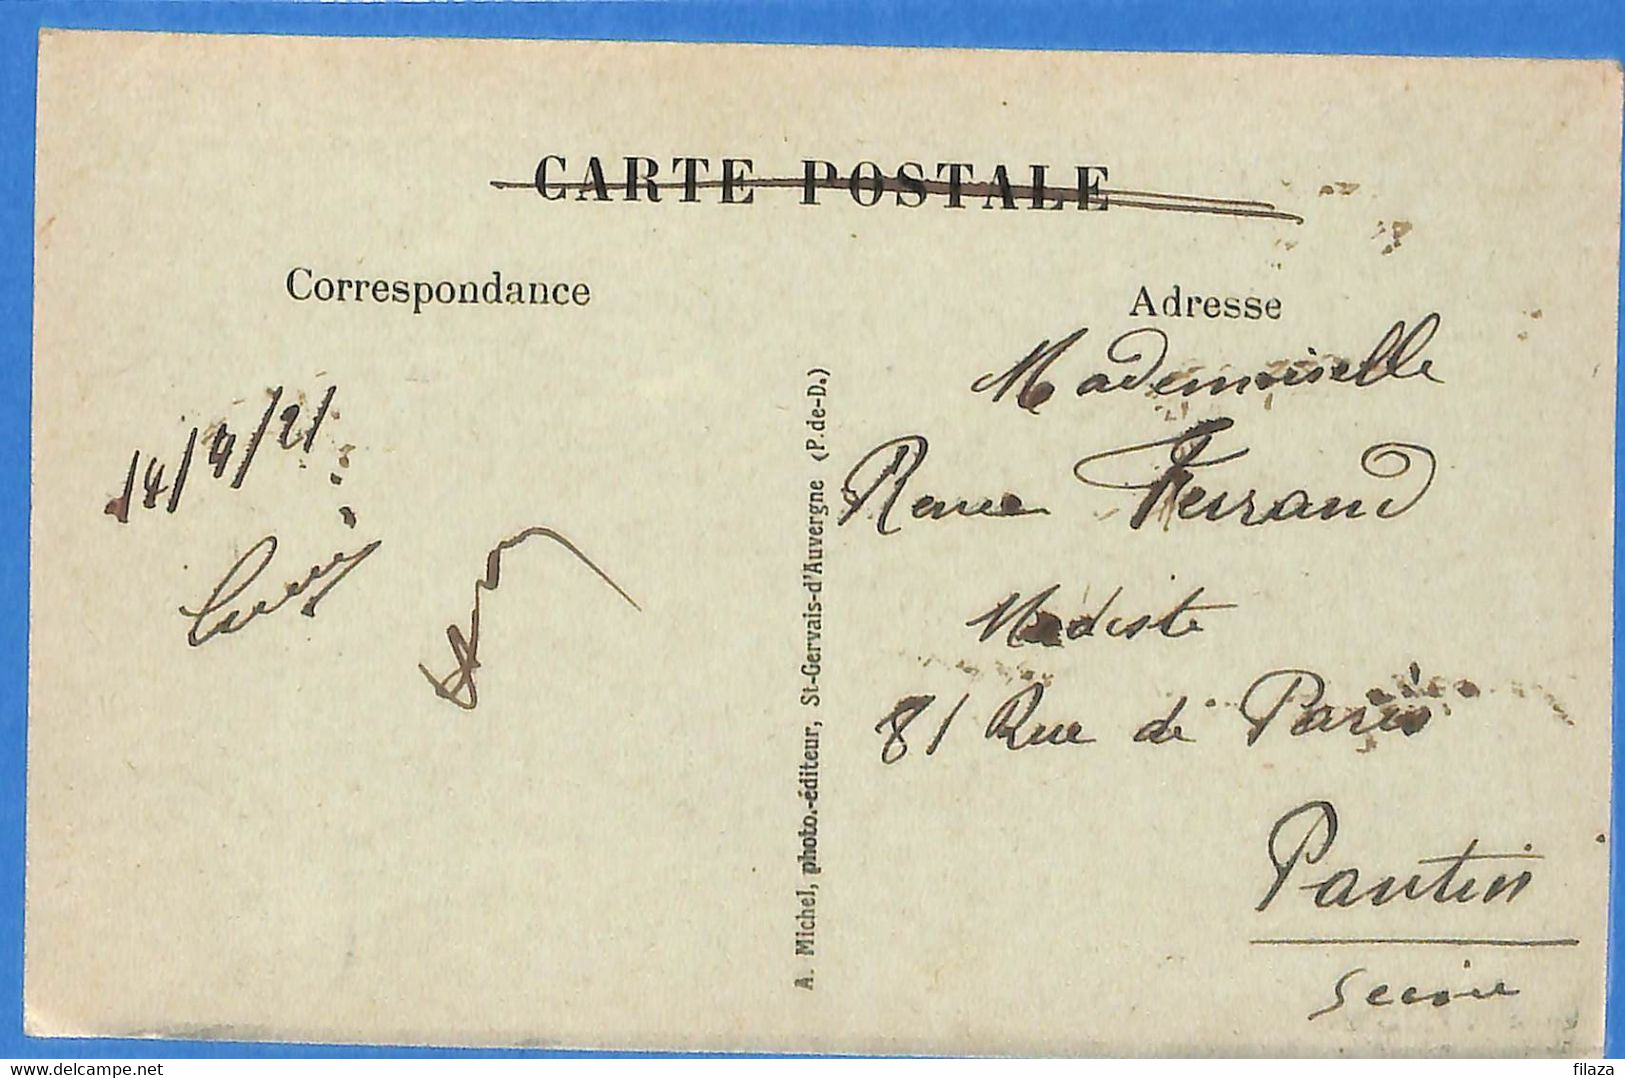 CARTE POSTALE
Correspondance
Adresse
14/9/21
A. Michel, photo.-éditeur, St-Gervais-d'Auvergne (P.-de-D.)
Mademoiselle
Renée Ferrand
Modiste
81 Rue de Paris
Pantin
Seine
delcampe.net
filaza